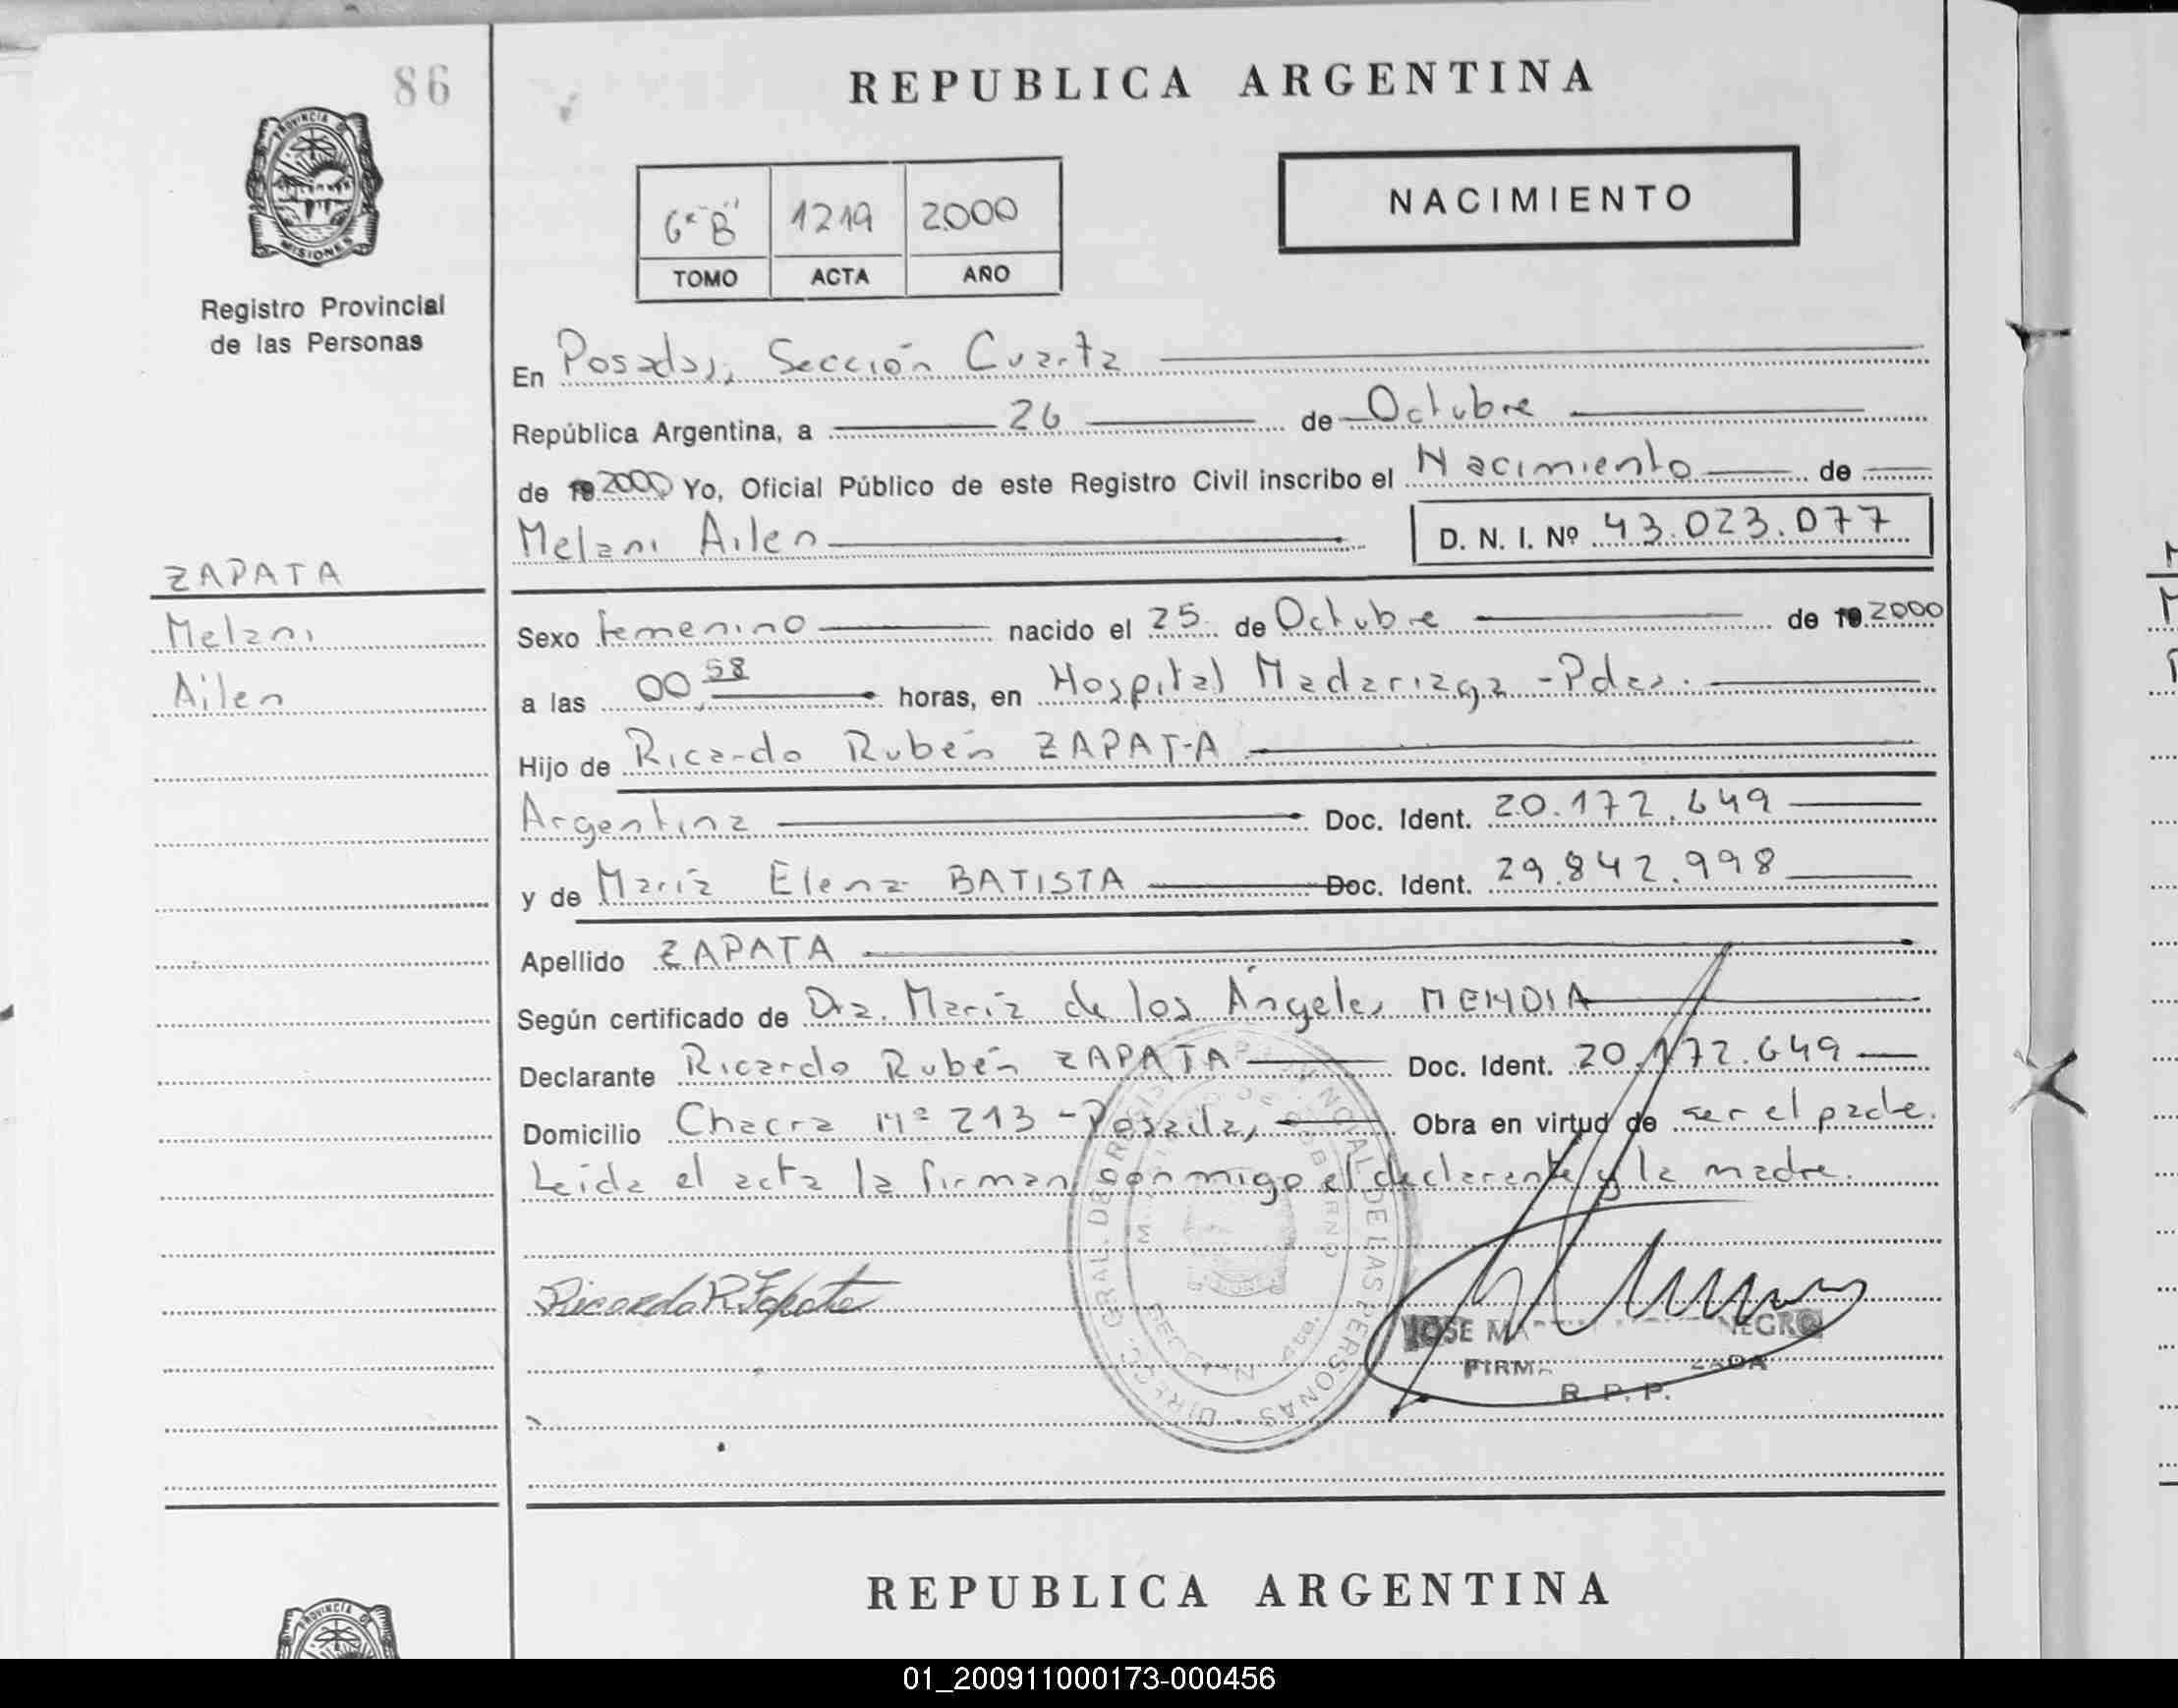 86
REPUBLICA ARGENTINA
PROVINCIA DE
MISIONES
Registro Provincial
de las Personas
6º "B" 1219 2000
TOMO ACTA AÑO
NACIMIENTO
En Posadas, Sección Cuarta
República Argentina, a 26 de Octubre
de 19 2000 Yo, Oficial Público de este Registro Civil inscribo el Nacimiento de
Melani Ailen D. N. I. Nº 43.023.077
ZAPATA
Melani
Ailen
Sexo femenino nacido el 25 de Octubre de 19 2000
a las 00,58 horas, en Hospital Madariaga - Pdas.
Hijo de Ricardo Rubén ZAPATA
Argentina Doc. Ident. 20.172.649
y de María Elena BATISTA Doc. Ident. 29.842.998
Apellido ZAPATA
Según certificado de Dra. María de los Ángeles MENDIA
Declarante Ricardo Rubén ZAPATA Doc. Ident. 20.172.649
Domicilio Chacra Nº 213 - Posadas, Obra en virtud de ser el padre.
Leída el acta la firman conmigo el declarante y la madre.
Ricardo R. Zapata
DIRECC. GRAL. DE REGISTRO PROVINCIAL DE LAS PERSONAS
JOSE NEGRO
R. P. P.
REPUBLICA ARGENTINA
PROVINCIA DE
01_200911000173-000456